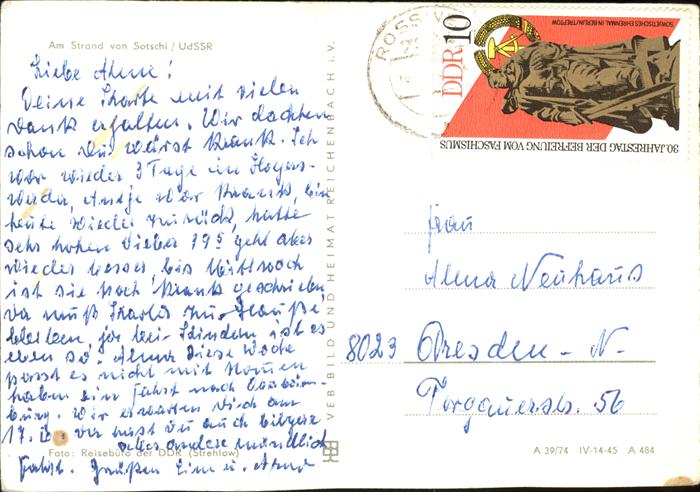 Am Strand von Sotschi / UdSSR
Liebe Anna!
Deine Karte mit vielen
Dank erhalten. Wir dachten
schon Du wärst Krank. Ich
war wieder 3 Tage in Hoyers-
werda, Antje war Krank, bin
heute wieder zurück, hatte
sehr hohen Fieber 39⁵ geht aber
wieder besser, bis Mittwoch
ist sie noch Krank geschrieben,
da muß zur Hauße
bleiben, ja bei Kindern ist es
eben so. Anna diese Woche
passt es nicht mit
haben eine Fahrt nach
burg. Wir erwarten Dich am
17. da hast Du auch
alles andere mündlich
Fahrt. Grüßen u.
Foto: Reisebüro der DDR (Strehlow)
VEB BILD UND HEIMAT REICHENBACH i. V.
ROSSW
DDR 10
SOWJETISCHES EHRENMAL IN BERLIN-TREPTOW
30. JAHRESTAG DER BEFREIUNG VOM FASCHISMUS
Frau
Anna Neuhaus
8023 Dresden - N-
Torgauerstr. 56
A 39/74 IV-14-45 A 484